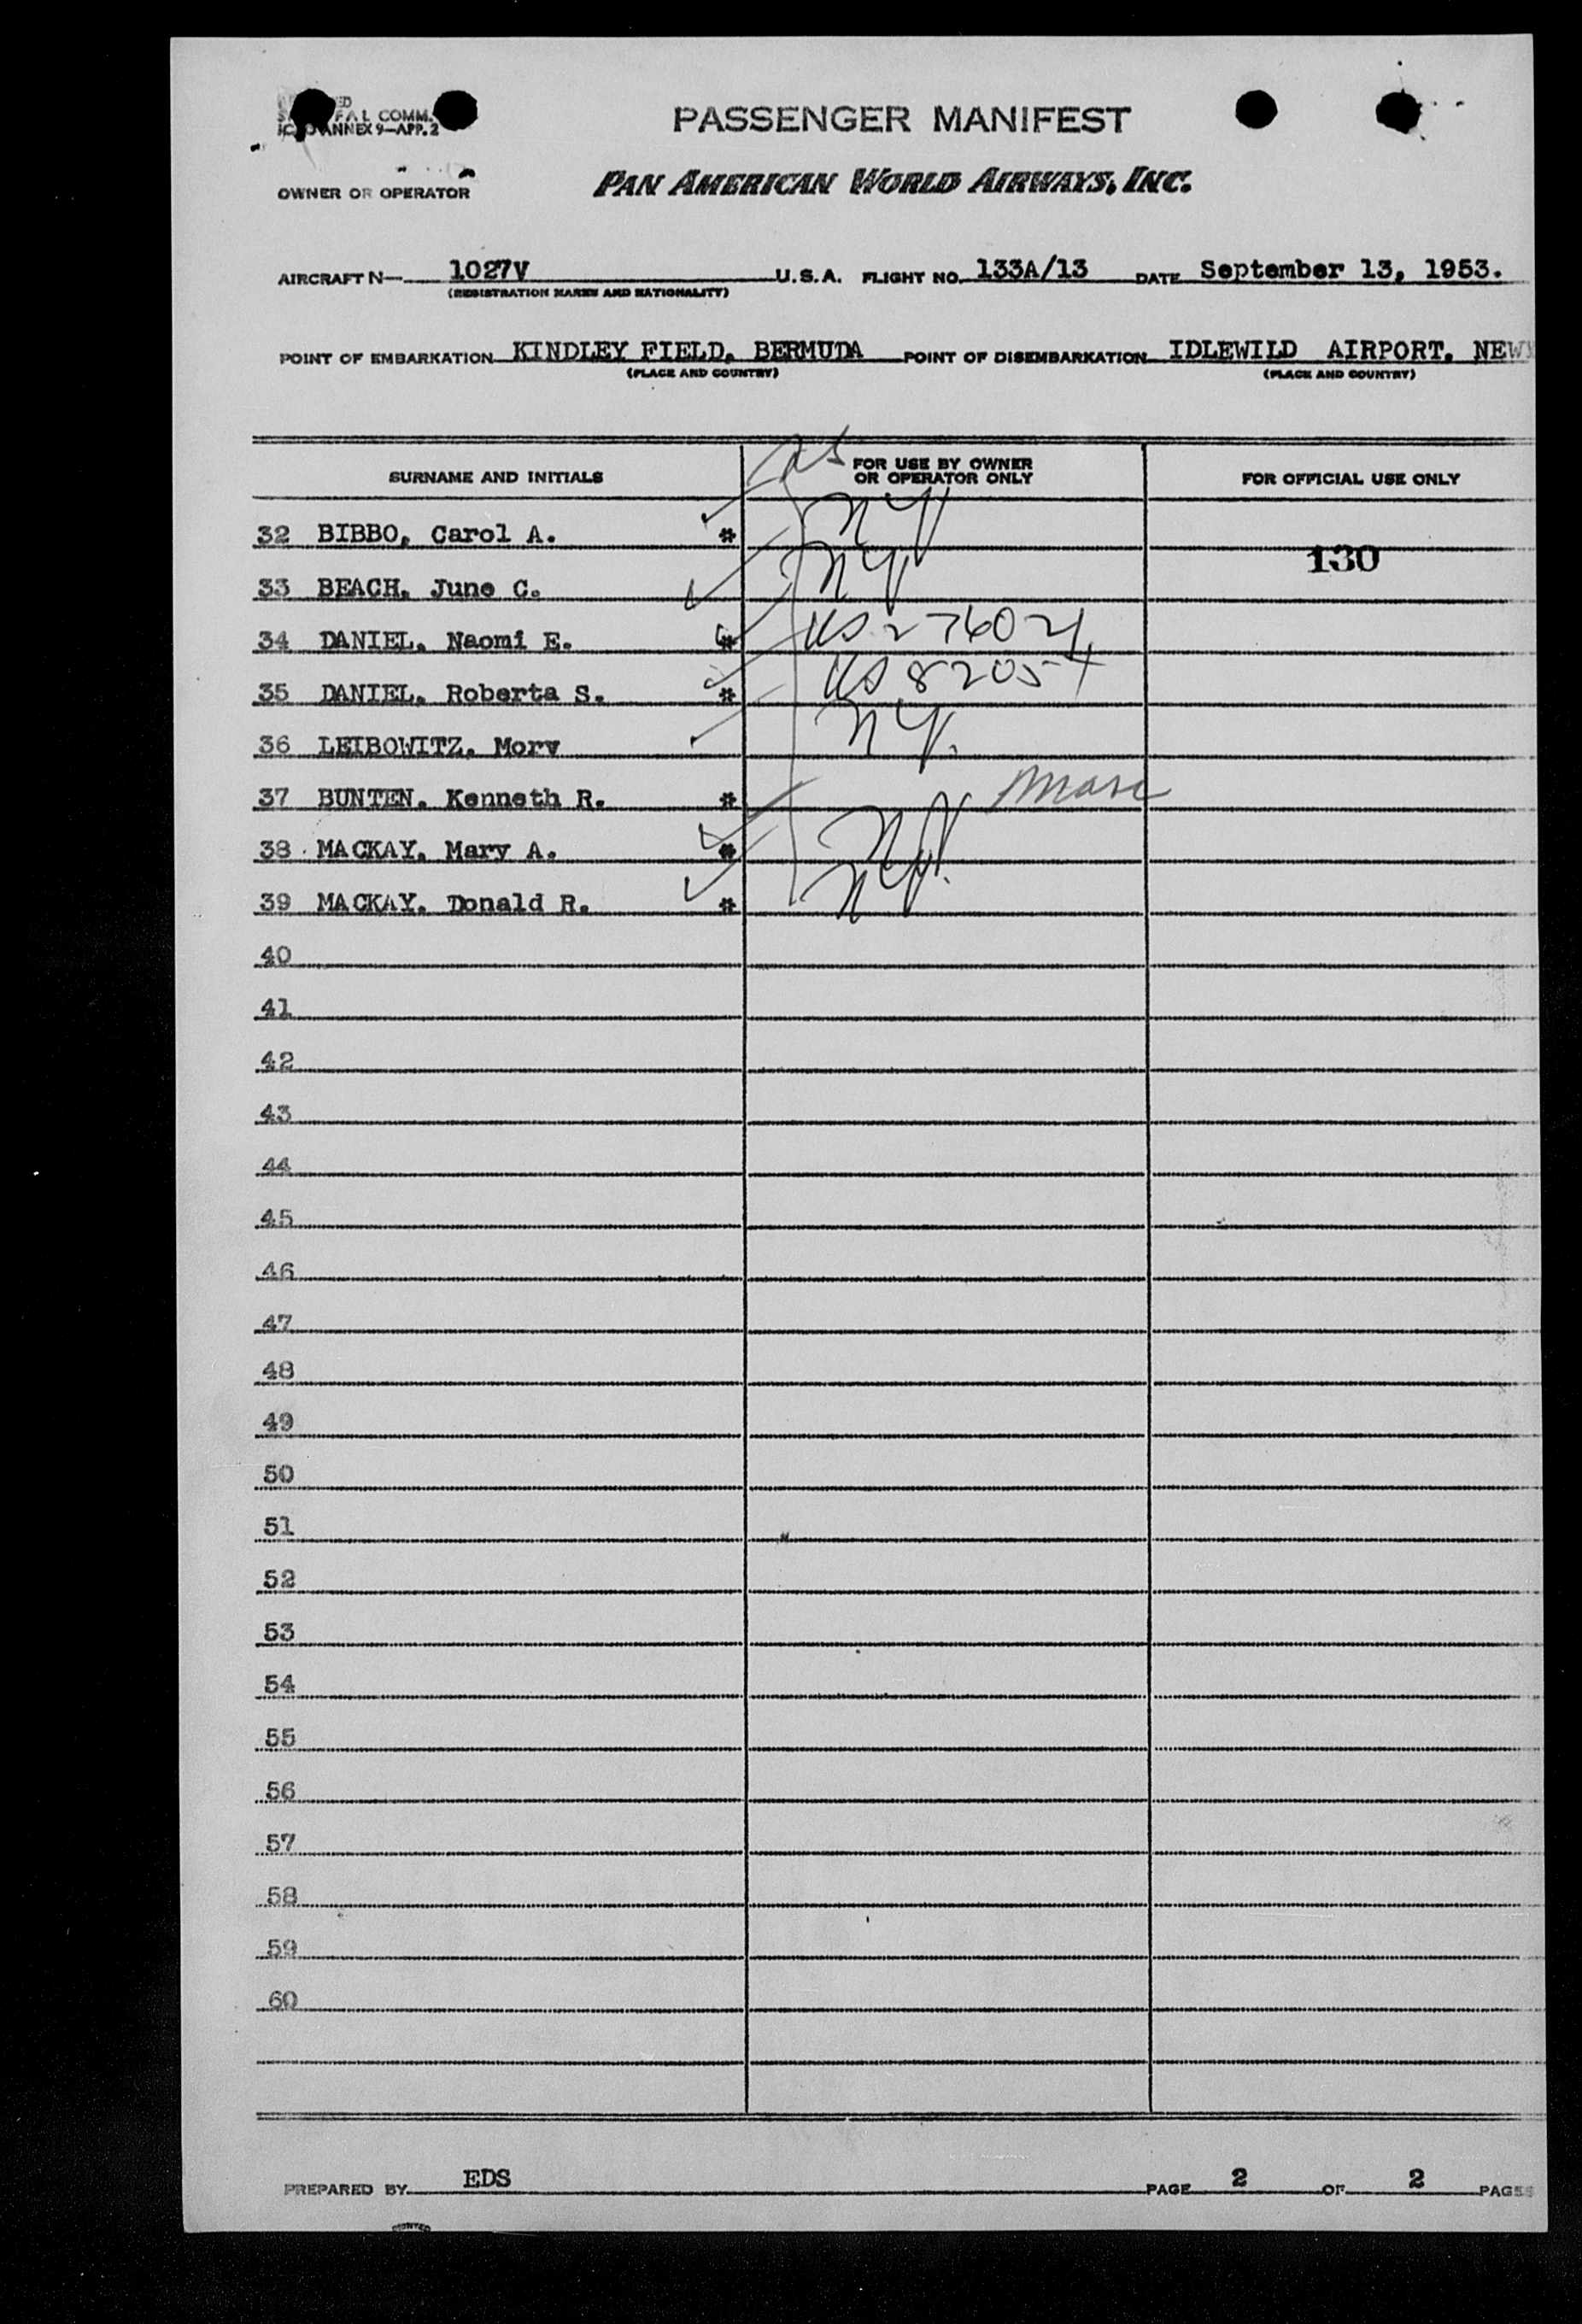 FAL COMM.
ANNEX 9—APP. 2
PASSENGER MANIFEST
OWNER OR OPERATOR PAN AMERICAN WORLD AIRWAYS, INC.
AIRCRAFT N— 1027V U.S.A. FLIGHT NO. 133A/13 DATE September 13, 1953.
(REGISTRATION MARKS AND NATIONALITY)
POINT OF EMBARKATION KINDLEY FIELD, BERMUDA POINT OF DISEMBARKATION IDLEWILD AIRPORT, NEW
(PLACE AND COUNTRY) (PLACE AND COUNTRY)
SURNAME AND INITIALS FOR USE BY OWNER OR OPERATOR ONLY FOR OFFICIAL USE ONLY
32 BIBBO, Carol A. * NY
130
33 BEACH, June C. NY
34 DANIEL, Naomi E. *
35 DANIEL, Roberta S. *
36 LEIBOWITZ, Morv NY.
37 BUNTEN, Kenneth R. * Masc
38 MACKAY, Mary A. * NY
39 MACKAY, Donald R. * NY.
40
41
42
43
44
45
46
47
48
49
50
51
52
53
54
55
56
57
58
59
60
PREPARED BY EDS PAGE 2 OF 2 PAGES